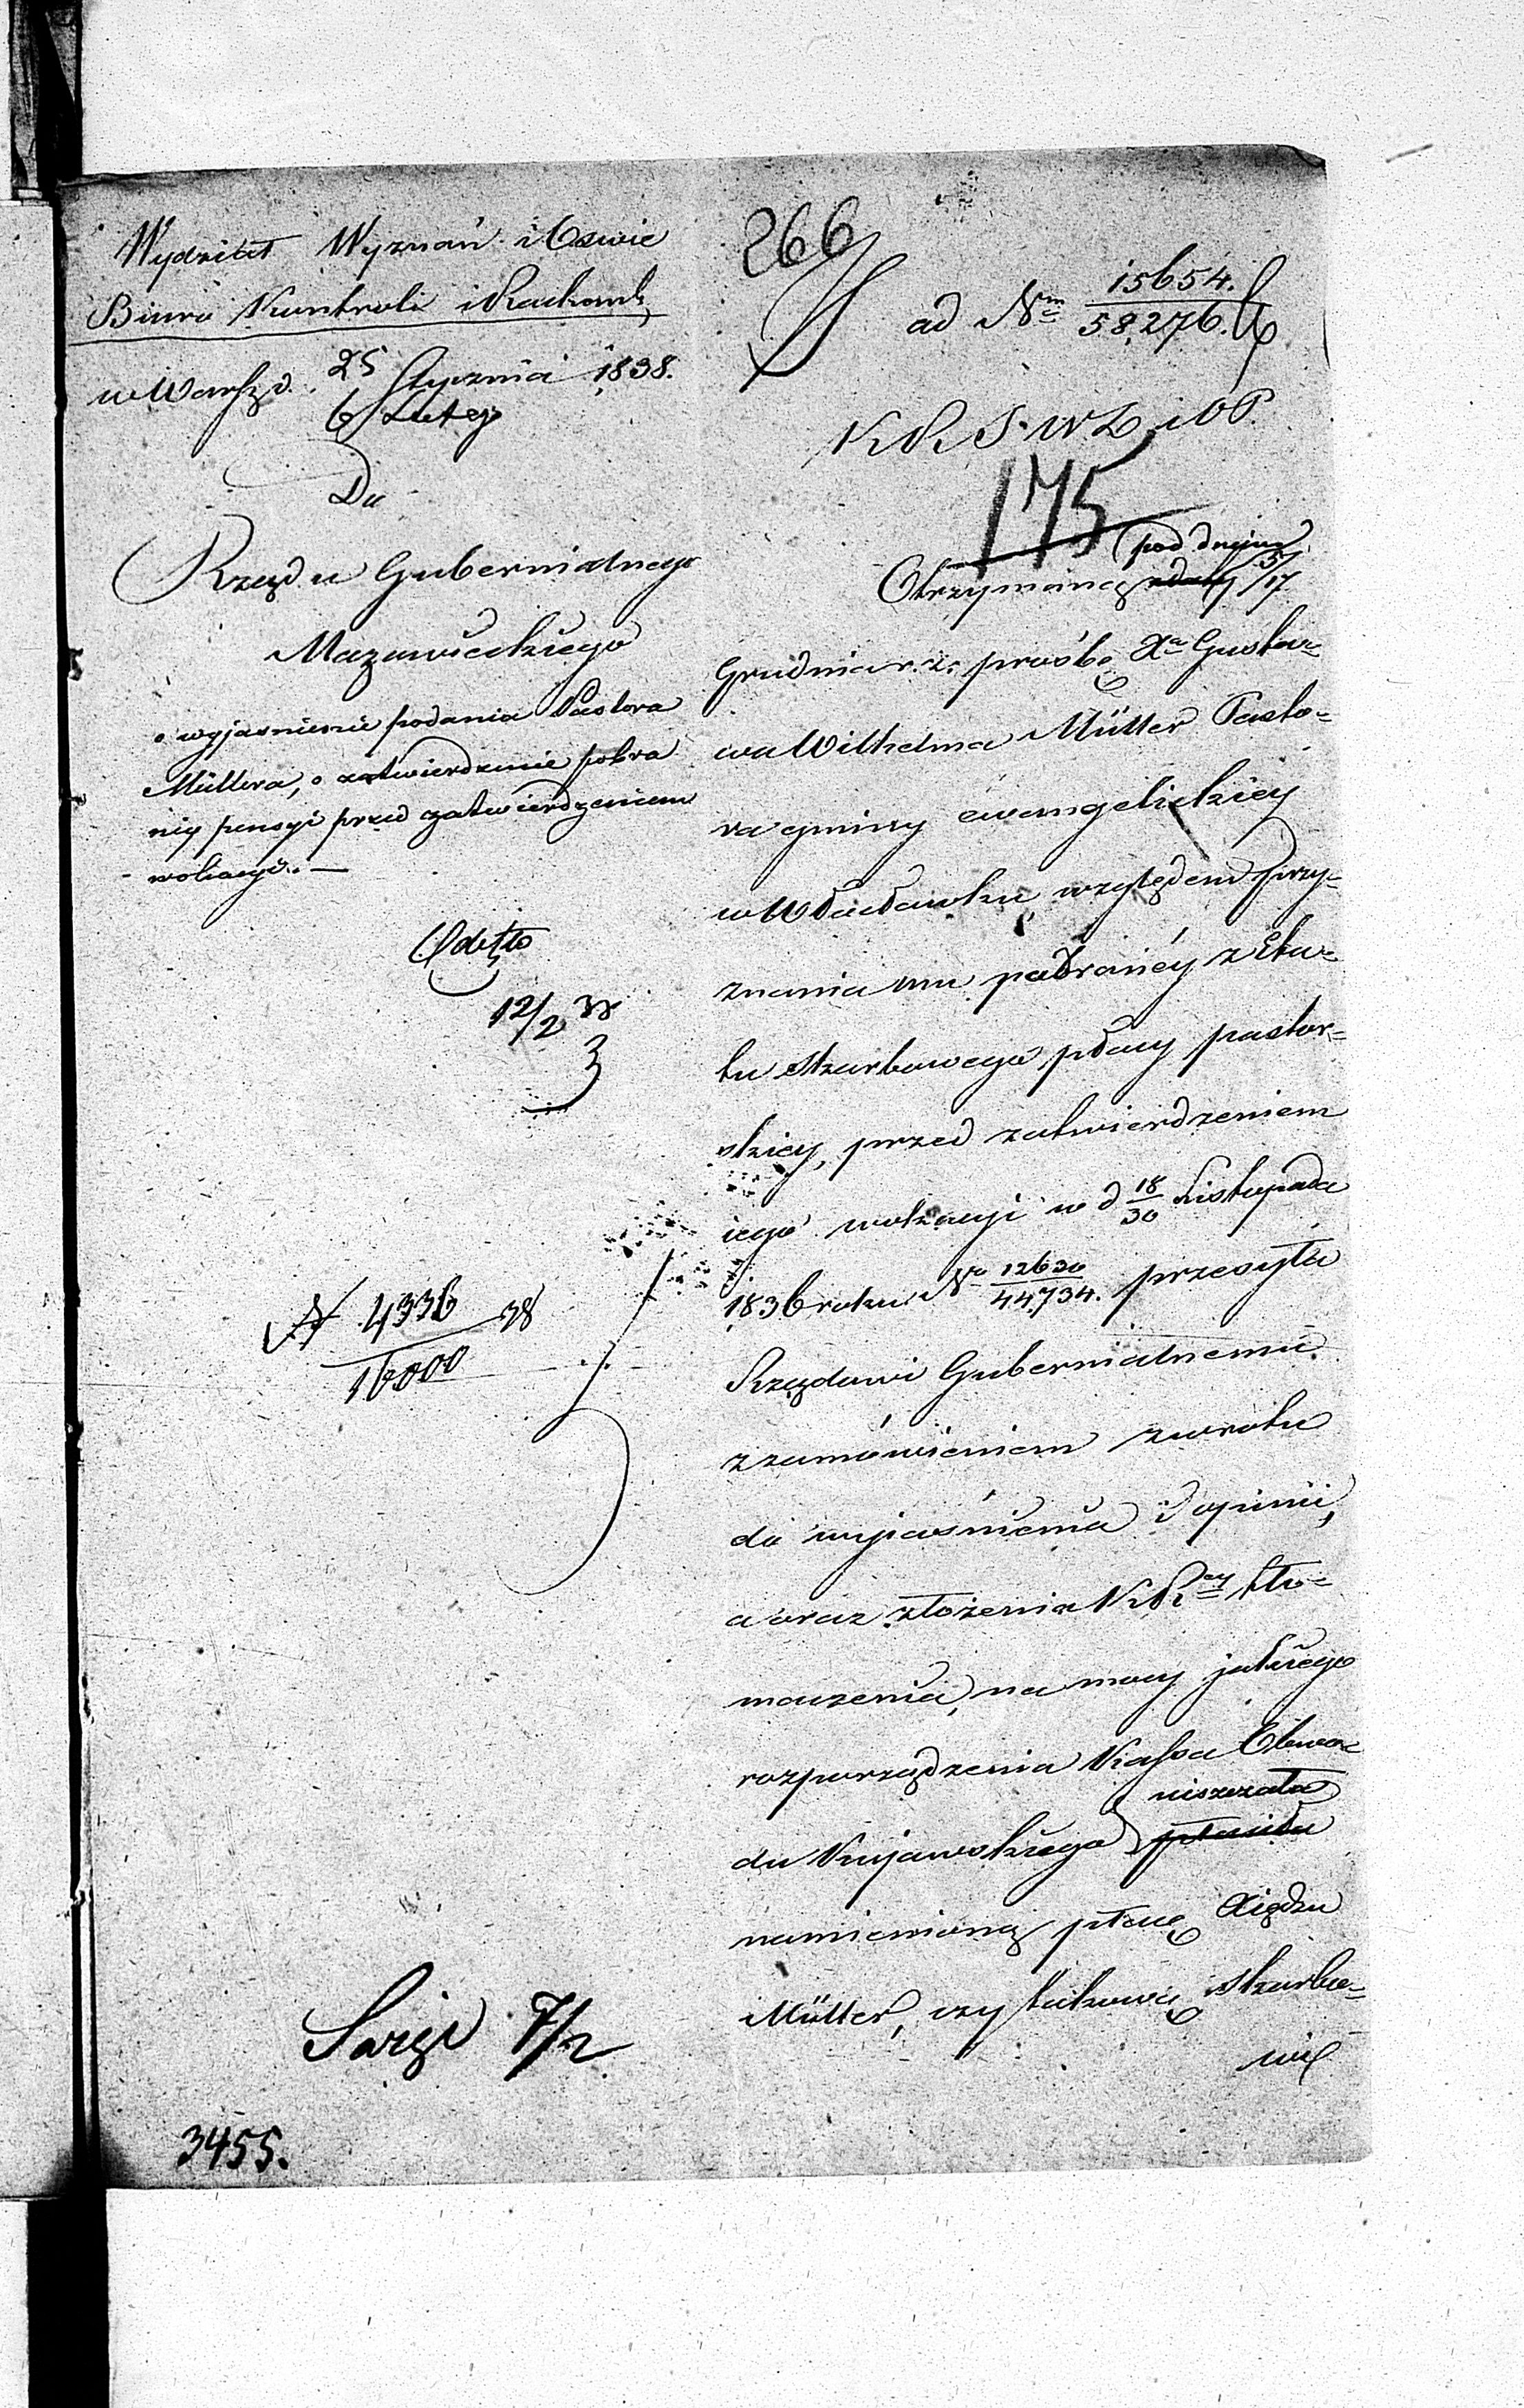 Wydział Wyznań i Oswie
Biuro Kontroli i Rachunk
w Warsz d. 25 Stycznia 1838.
6 Lutego
Do
Rządu Gubernialnego
Mazowieckiego
o wyjasnienie podania Pastora
Müllera, o zatwierdzenie pobra
nęy pensyi przed zatwierdzeniem
wokacyi. —
12/2 38
3
N 4336 38
16000
7/2
3455.
266
ad Nm 15654.
58,276.
K R S. W D i O P.
175
pod dniem
Otrzymaną 5/17
Grudnia r. z. prośbę Xa Gusta-
wa Wilhelma Müller Pasto-
ra gminy ewangelickiey
w Włocławku względem przy-
znania mu pobranéy z Eta-
tu skarbowego płacy pastor-
skiey, przed zatwierdzeniem
iego wokacyi w d 18/30 Listopada
1836 roku No 12630/44,734. przesyła
Rządowi Gubernialnemu
z zamówieniem zwrotu
do wyjaśnienia i opinii,
a oraz złożenia K R cy tło-
maczenia, na mocy jakiego
rozporządzenia Kassa Obwo-
uiszczała
du Kujawskiego płaciła
namienioną płacę Xiędzu
Müller, czy takowa skarbo-
wi